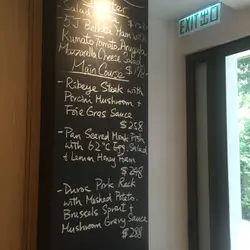 Salad
5J Bellota Ham with
Kumato Tomato, Arugula
Mozzarella Cheese Salad
Main Course
- Ribeye Steak with
Porcini Mushroom +
Foie Gras Sauce
$258
- Pan Seared Monk Fish
with 62°C Egg, Salad
+ Lemon Honey Foam
$248
- Duroc Pork Rack
with Mashed Potato,
Brussels Sprout +
Mushroom Gravy Sauce
$288
EXIT 出口